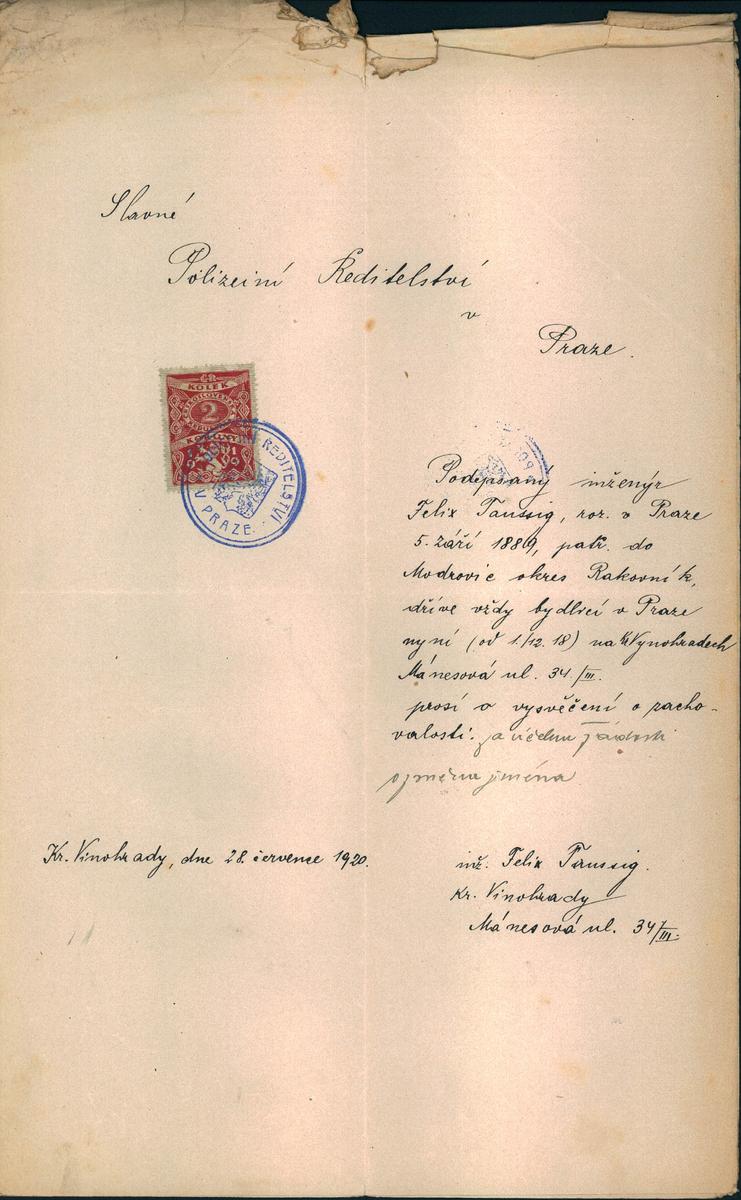 Slavné
Polizeiní Ředitelství
v
Praze.
KOLEK
2
KORUNY
ŘEDITELSTVÍ
V PRAZE
Podepsaný inženýr
Felix Taussig, roz. v Praze
5. září 1889, patř. do
Modrovic okres Rakovník,
dříve vždy bydlící v Praze
nyní (od 1./12. 18) na K. Vynohradech
Mánesová ul. 34./III.
prosí o vysvěčení o zacho-
valosti. za účelem žádosti
o změnu jména
Kr. Vinohrady, dne 28. července 1920.
inž. Felix Taussig.
Kr. Vinohrady
Mánesová ul. 34/III.